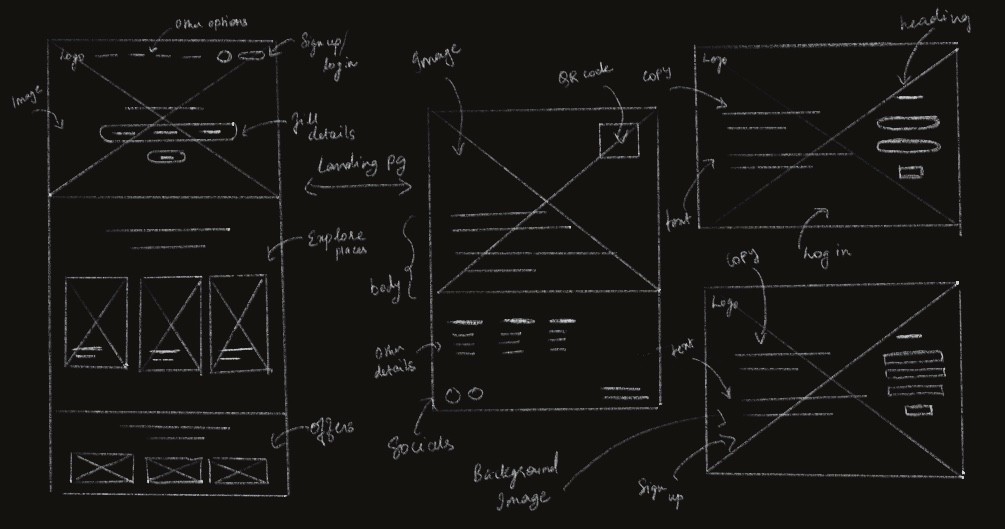 Other options
Logo
Sign up/
Login
Image
fill
details
Landing pg
Explore
places
offers
Image
QR code
body
Other
details
Socials
Background
Image
Copy
heading
Logo
text
Log in
Copy
Logo
text
Sign
up